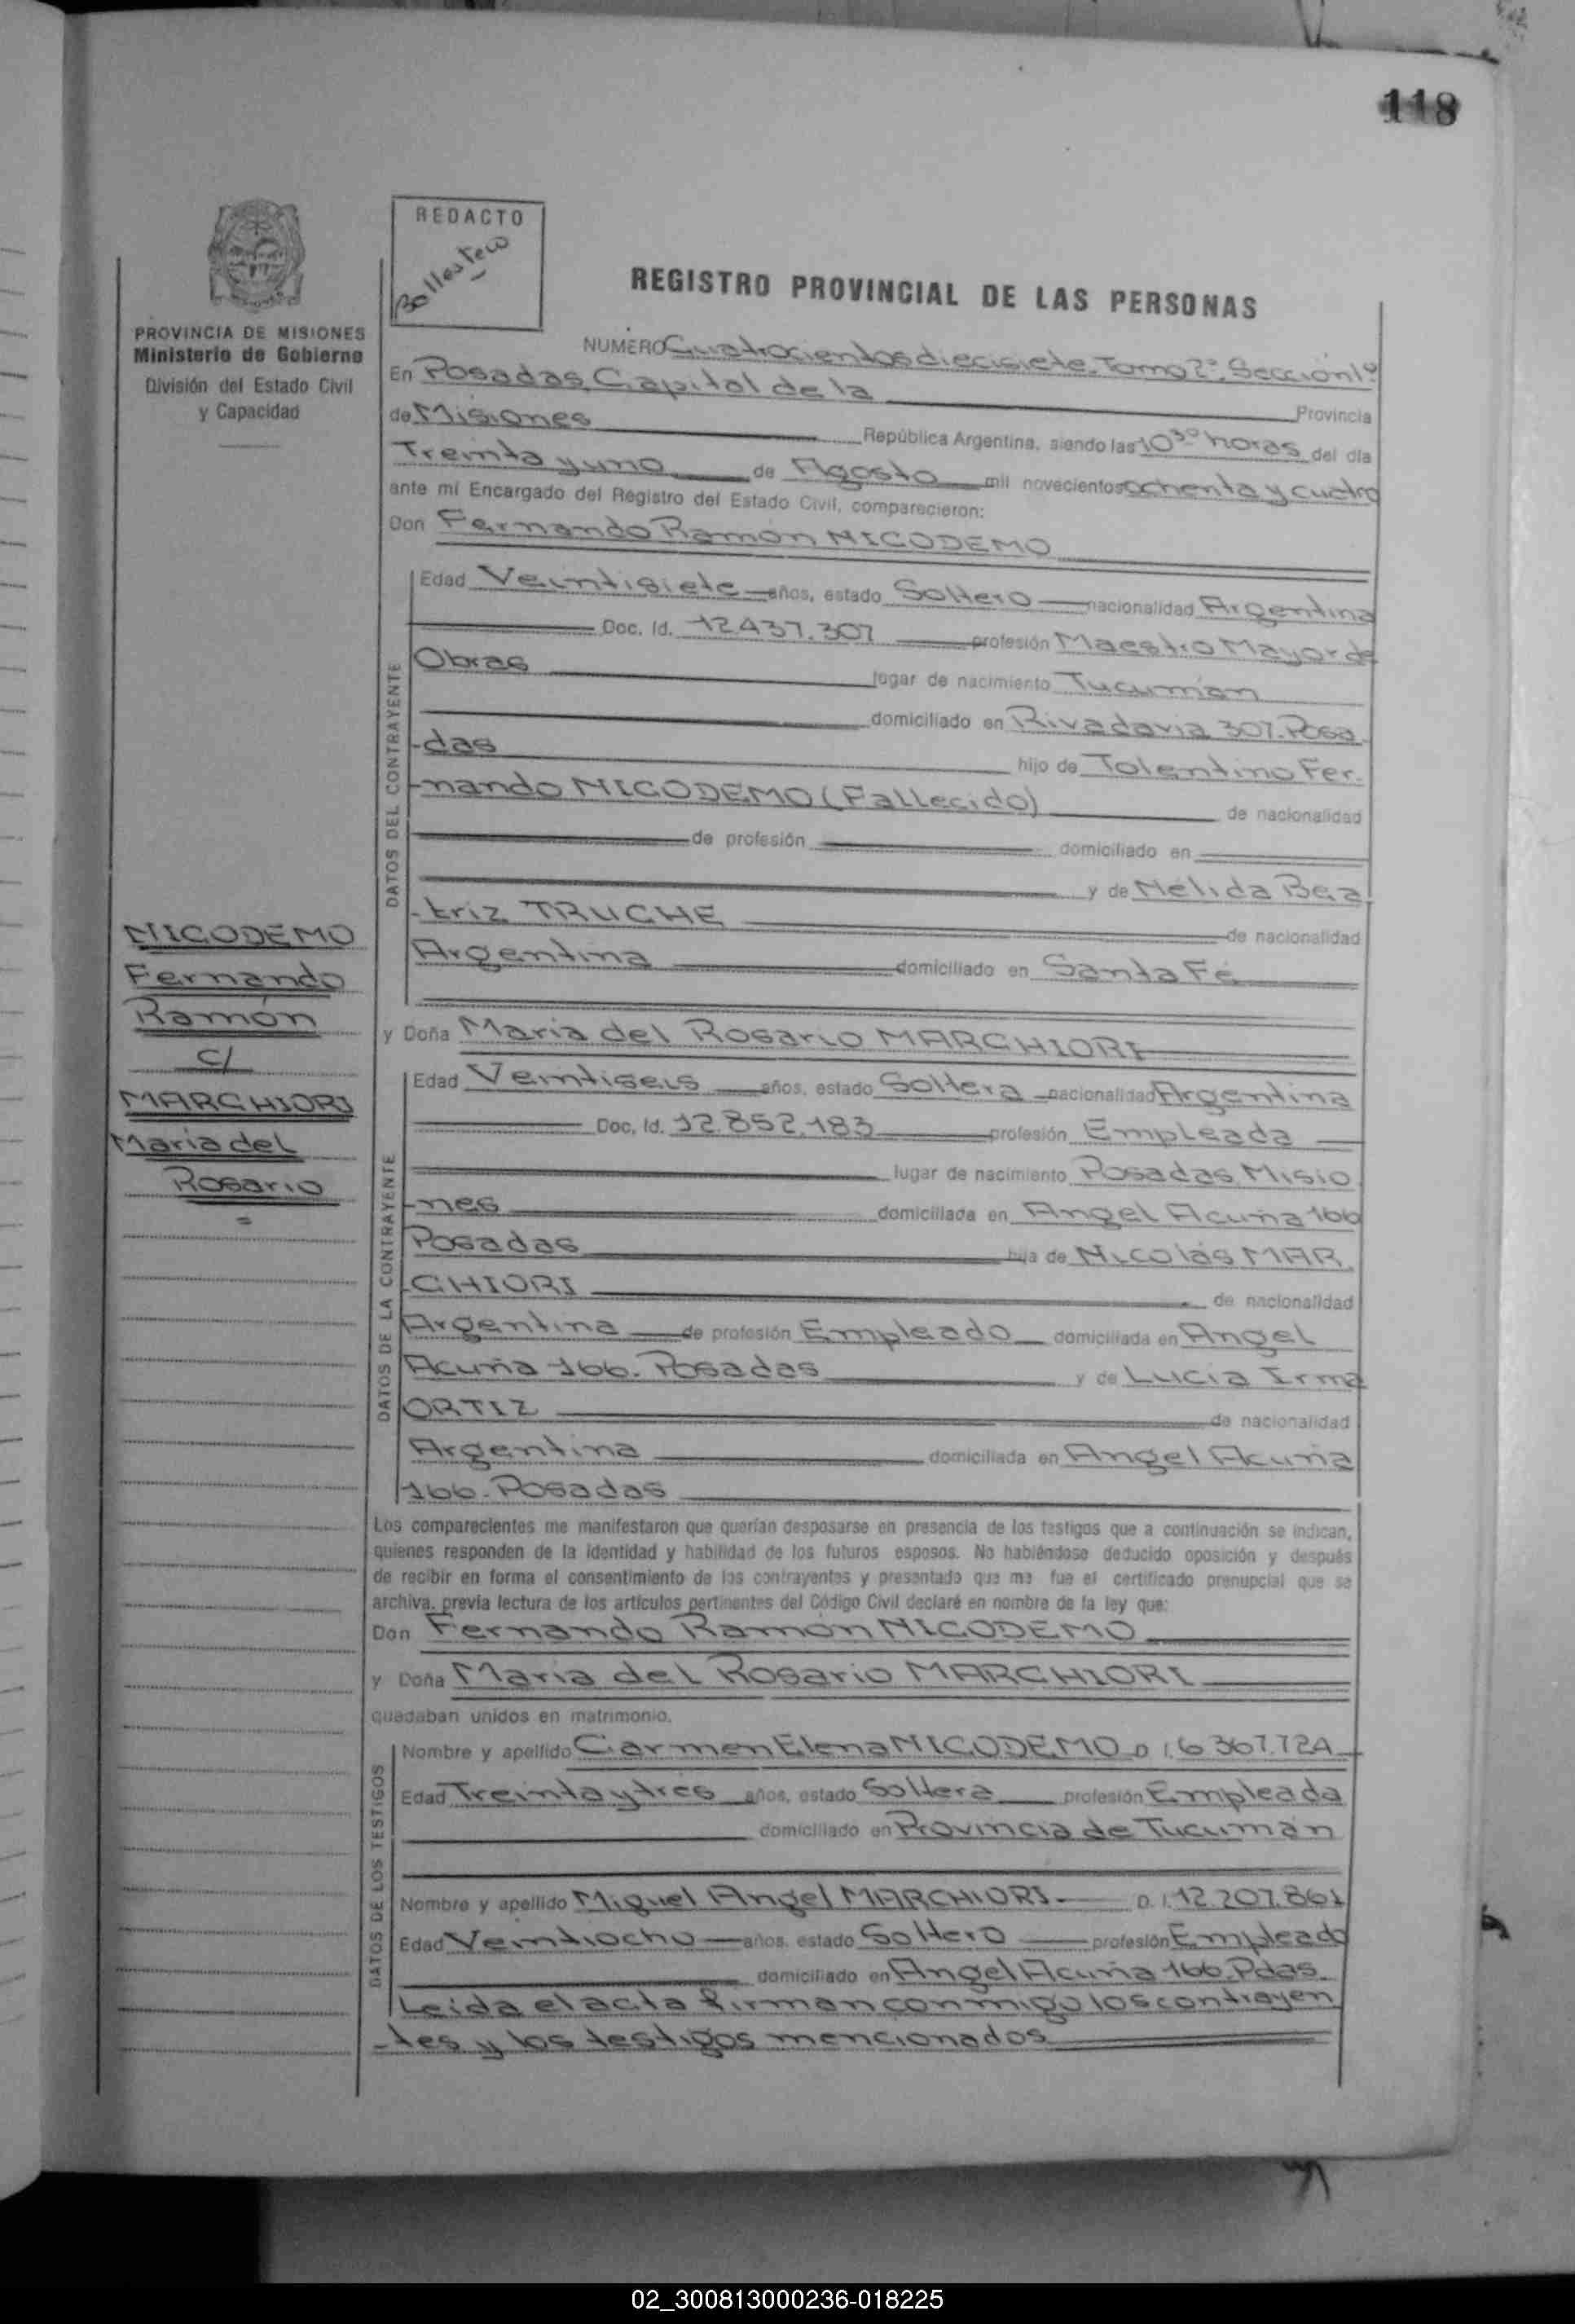 118
REDACTO
Ballestero
REGISTRO PROVINCIAL DE LAS PERSONAS
PROVINCIA DE MISIONES
Ministerio de Gobierno
División del Estado Civil
y Capacidad
NUMERO Cuatrocientos diecisiete. Tomo 2º. Sección 1º
En Posadas, Capital de la Provincia
de Misiones República Argentina, siendo las 10³⁰ horas del día
Treinta y uno de Agosto mil novecientos ochenta y cuatro
ante mí Encargado del Registro del Estado Civil, comparecieron:
Don Fernando Ramón NICODEMO
DATOS DEL CONTRAYENTE
Edad Veintisiete años, estado Soltero nacionalidad Argentina
Doc. Id. 12.437.307 profesión Maestro Mayor de
Obras lugar de nacimiento Tucumán
domiciliado en Rivadavia 307. Posa
-das hijo de Tolentino Fer-
-nando NICODEMO (Fallecido) de nacionalidad
de profesión domiciliado en
y de Nélida Bea
-triz TRUCHE de nacionalidad
Argentina domiciliado en Santa Fé
NICODEMO
Fernando
Ramón
c/
MARCHIORI
Maria del
Rosario
=
y Doña Maria del Rosario MARCHIORI
DATOS DE LA CONTRAYENTE
Edad Veintiseis años, estado Soltera nacionalidad Argentina
Doc. Id. 12.852.183 profesión Empleada
lugar de nacimiento Posadas, Misio
-nes domiciliada en Angel Acuña 166
Posadas hija de Nicolás MAR
-CHIORI de nacionalidad
Argentina de profesión Empleado domiciliada en Angel
Acuña 166. Posadas y de Lucia Irma
ORTIZ de nacionalidad
Argentina domiciliada en Angel Acuña
166. Posadas
Los comparecientes me manifestaron que querían desposarse en presencia de los testigos que a continuación se indican,
quienes responden de la identidad y habilidad de los futuros esposos. No habiéndose deducido oposición y después
de recibir en forma el consentimiento de los contrayentes y presentado que me fue el certificado prenupcial que se
archiva, previa lectura de los artículos pertinentes del Código Civil declaré en nombre de la ley que:
Don Fernando Ramón NICODEMO
y Doña Maria del Rosario MARCHIORI
quedaban unidos en matrimonio.
DATOS DE LOS TESTIGOS
Nombre y apellido Carmen Elena NICODEMO D.I. 6.367.724
Edad Treinta y tres años, estado Soltera profesión Empleada
domiciliado en Provincia de Tucumán
Nombre y apellido Miguel Angel MARCHIORI.- D.I. 12.207.861
Edad Veintiocho años, estado Soltero profesión Empleado
domiciliado en Angel Acuña 166. Pdas.
Leída el acta firman conmigo los contrayen
-tes y los testigos mencionados
02_300813000236-018225